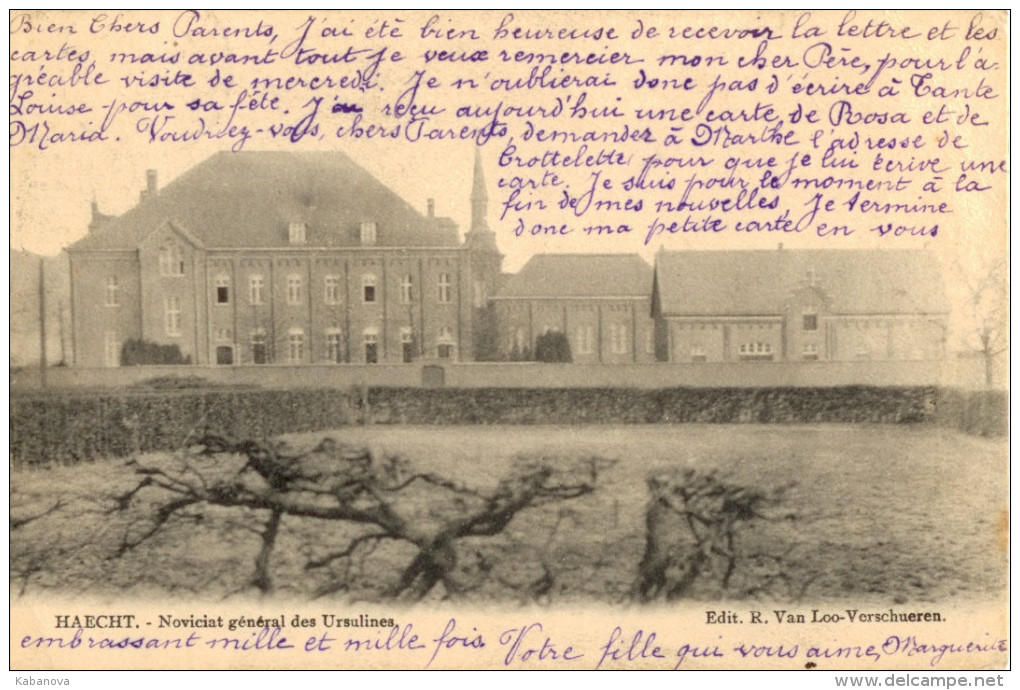 Bien Chers Parents, J'ai été bien heureuse de recevoir la lettre et les
cartes, mais avant tout je veux remercier mon cher Père, pour l'a-
gréable visite de mercredi. Je n'oublierai donc pas d'écrire à Tante
Louise pour sa fête. J'ai reçu aujourd'hui une carte, de Rosa et de
Maria. Voudriez-vous, chers Parents, demander à Marthe l'adresse de
Trottelette pour que je lui écrive une
carte. Je suis pour le moment à la
fin de mes nouvelles, Je termine
donc ma petite carte en vous
HAECHT. - Noviciat général des Ursulines.
Edit. R. Van Loo-Verschueren.
embrassant mille et mille fois. Votre fille qui vous aime, Marguerite
Kabanova
www.delcampe.net